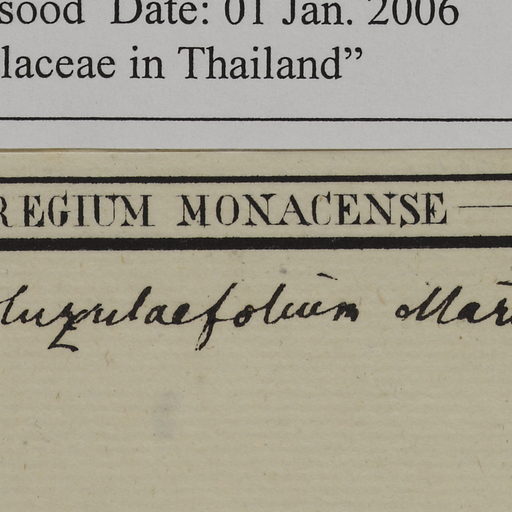 sood Date: 01 Jan. 2006
laceae in Thailand”
REGIUM MONACENSE
luzulaefolium Mart